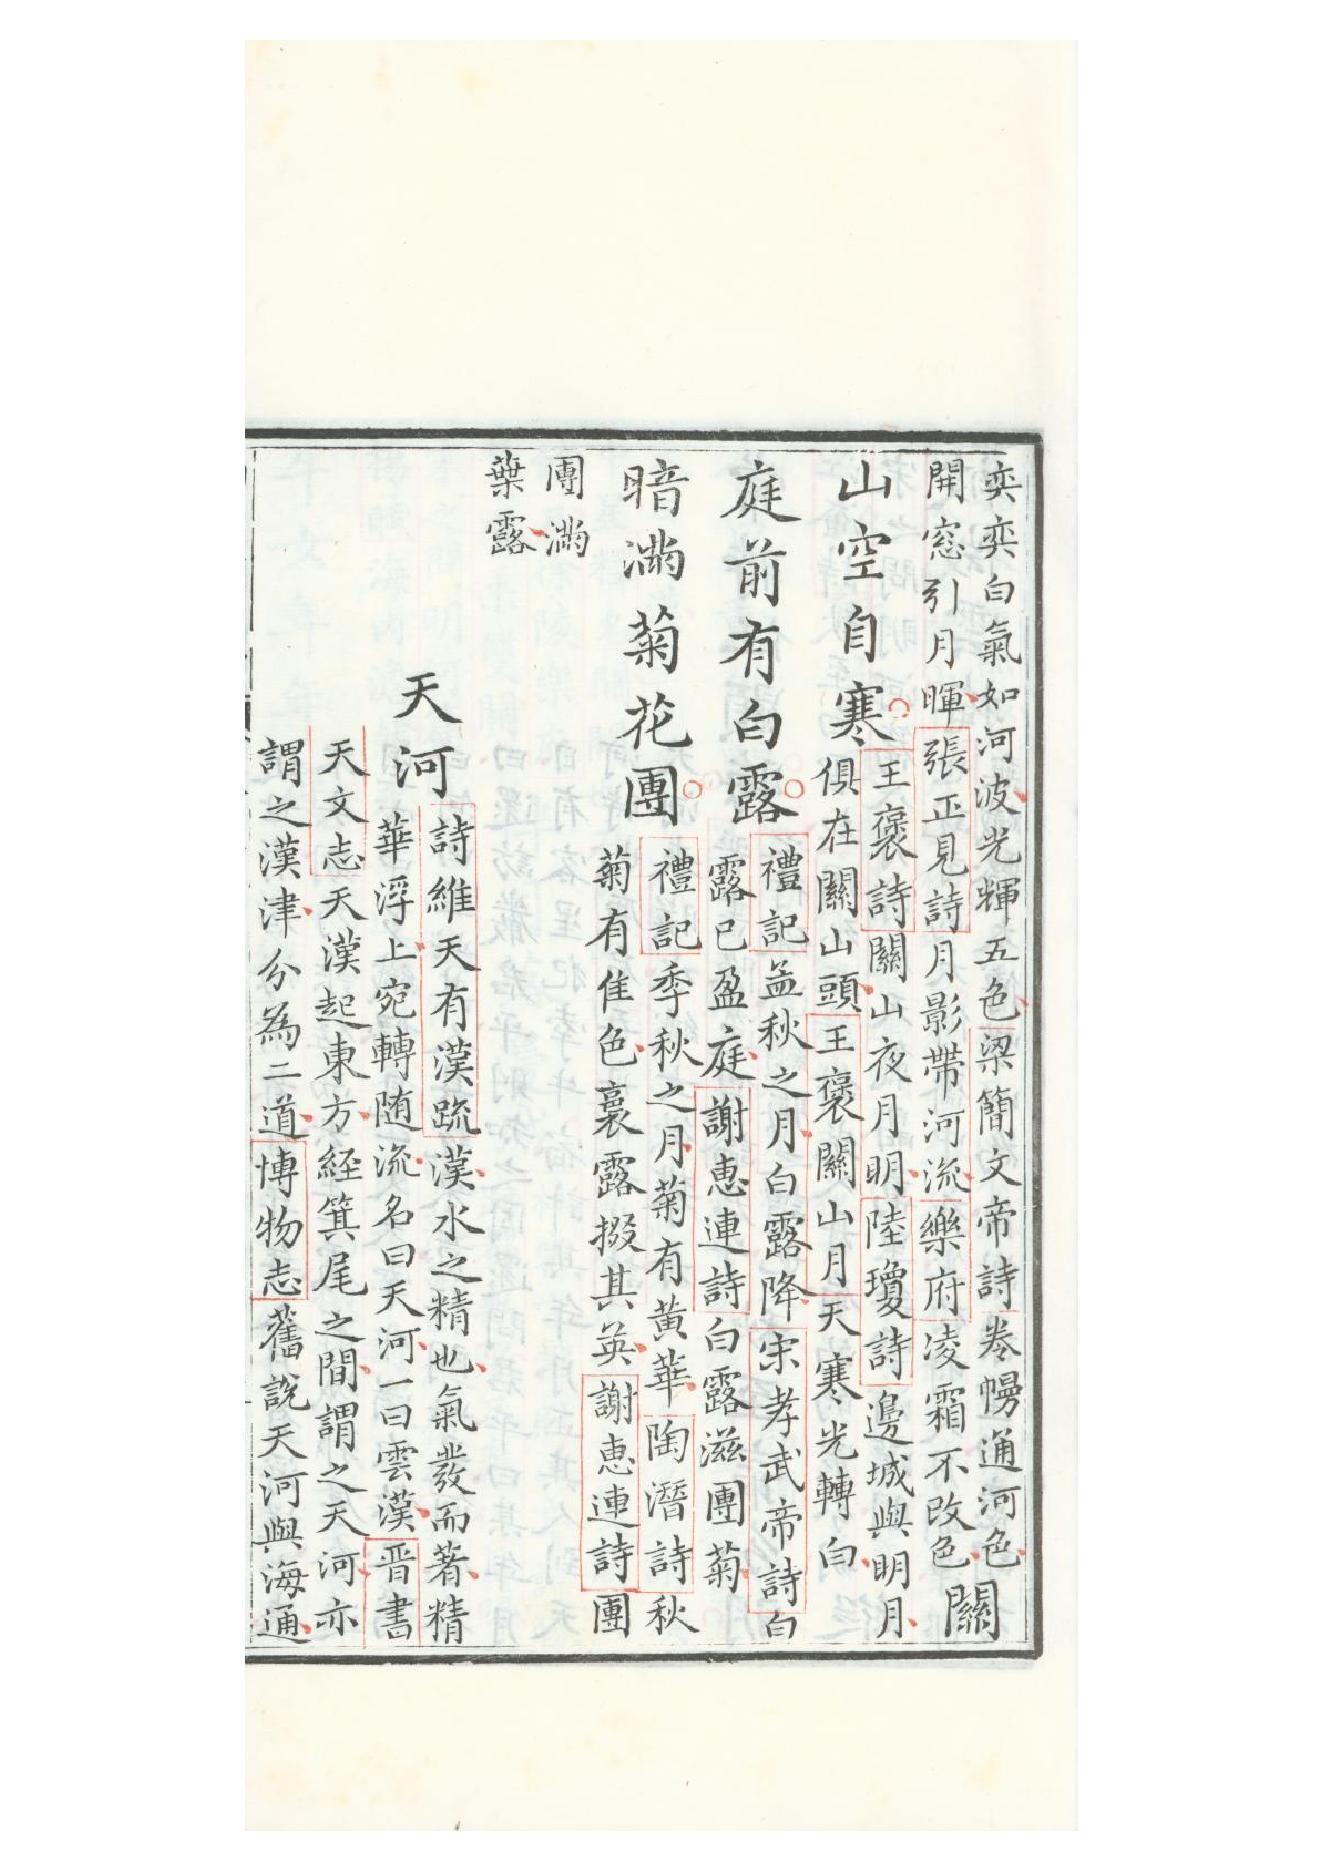 奕奕白氣如河波光輝五色梁簡文帝詩卷幔通河色
開窓引月暉張正見詩月影帶河流樂府凌霜不改色關
山空自寒王褒詩關山夜月明陸瓊詩邊城與明月
俱在關山頭王褒關山月天寒光轉白
庭前有白露禮記孟秋之月白露降宋孝武帝詩白
露已盈庭謝惠連詩白露滋團菊
暗滿菊花團禮記季秋之月菊有黃華陶潛詩秋
菊有隹色裛露掇其英謝惠連詩團
團滿
葉露
天河詩維天有漢疏漢水之精也氣發而著精
華浮上宛轉随流名曰天河一曰雲漢晋書
天文志天漢起東方經箕尾之間謂之天河亦
謂之漢津分為二道博物志舊說天河與海通